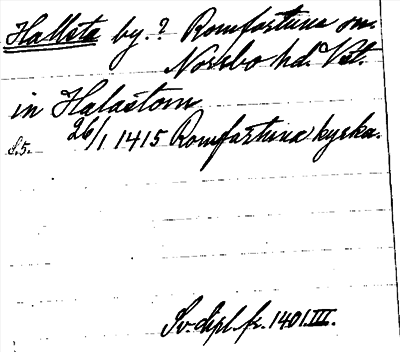 Hallsta by.? Romfartuna sn.
Norrbo hd. Vstl.
in Halastom
S.5. 26/1 1415 Romfartuna kyrka.
Sv. dipl. fr. 1401. III.